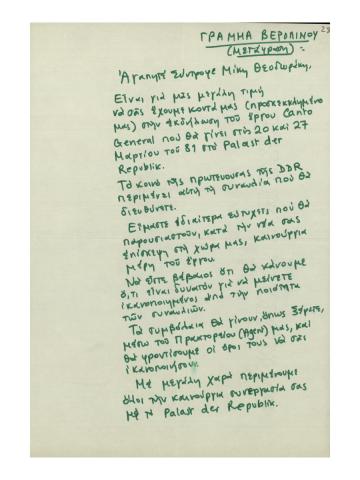 ΓΡΑΜΜΑ ΒΕΡΟΛΙΝΟΥ
(Μετάφραση):
Ἀγαπητέ Σύντροφε Μίκη Θεοδωράκη,
Εἶναι γιά μᾶς μεγάλη τιμή
νά σᾶς ἔχουμε κοντά μας (προσκεκλημένο
μας) στήν ἐκδήλωση τοῦ ἔργου Canto
General πού θά γίνει στίς 20 καί 27
Μαρτίου τοῦ 81 στό Palast der
Republik.
Τό κοινό τῆς πρωτεύουσας τῆς DDR
περιμένει αὐτή τή συναυλία πού θά
διευθύνετε.
Εἴμαστε ἰδιαίτερα εὐτυχεῖς πού θά
παρουσιαστοῦν, κατά τήν νέα σας
ἐπίσκεψη στή χώρα μας, καινούργια
μέρη τοῦ ἔργου.
Νά εἶστε βέβαιος ὅτι θά κάνουμε
ὅ,τι εἶναι δυνατόν γιά νά μείνετε
ἱκανοποιημένος ἀπό τήν ποιότητα
τῶν συναυλιῶν.
Τά συμβόλαια θά γίνουν, ὅπως ξέρετε,
μέσω τοῦ Πρακτορείου μας, καί
θά φροντίσουμε οἱ ὅροι τους νά σᾶς
ἱκανοποιήσουν.
Μέ μεγάλη χαρά περιμένουμε
ὅλοι τήν καινούργια συνεργασία σας
μέ τό Palast der Republik.